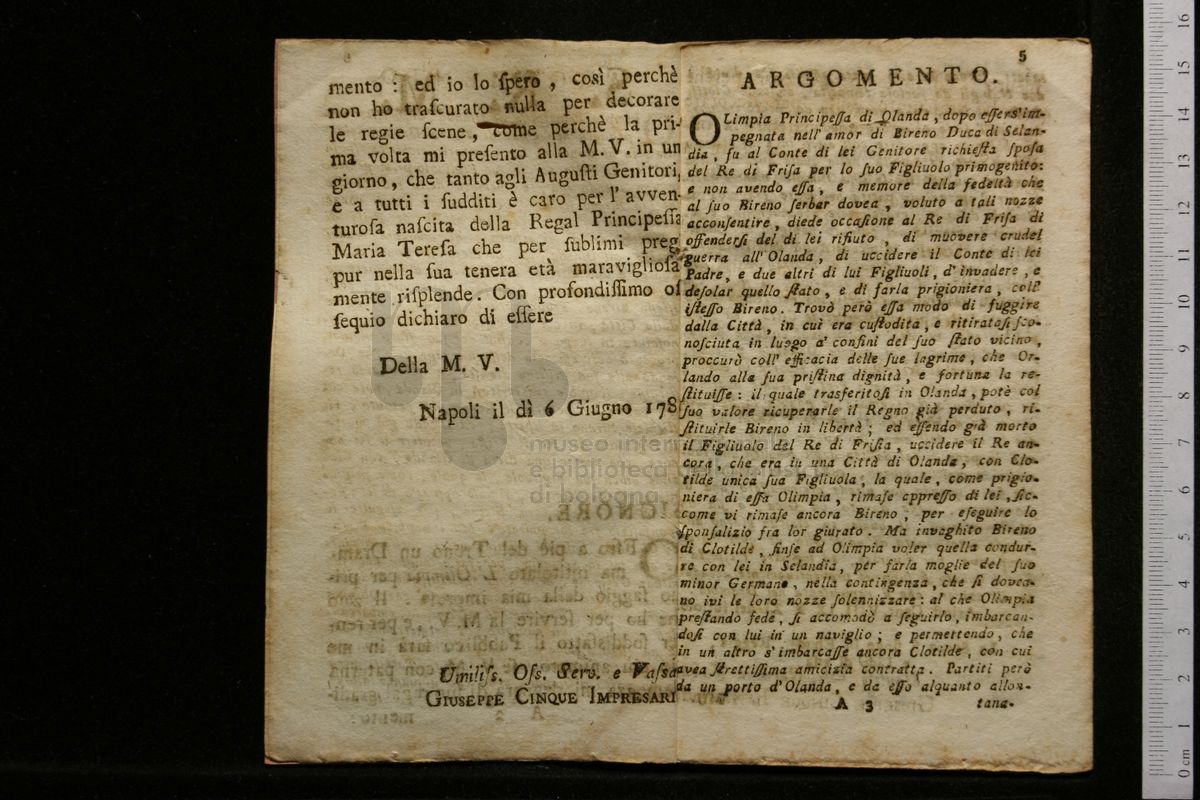 mento : ed io lo ſpero , così perchè
non ho traſcurato nulla per decorare
le regie ſcene, come perchè la pri-
ma volta mi preſento alla M. V. in un
giorno, che tanto agli Auguſti Genitori,
e a tutti i ſudditi è caro per l' avven-
turoſa naſcita della Regal Principeſſa
Maria Tereſa che per ſublimi preg
pur nella ſua tenera età maraviglioſa
mente riſplende. Con profondiſſimo oſ
ſequio dichiaro di eſſere
Della M. V.
Napoli il dì 6 Giugno 178
Umiliſs. Oſs. Serv. e Vaſsa
GIUSEPPE CINQUE IMPRESARI
5
ARGOMENTO.
OLimpia Principeſſa di Olanda , dopo eſſerſi im-
pegnata nell' amor di Bireno Duca di Selan-
dia , fu al Conte di lei Genitore richieſta ſpoſa
del Re di Friſa per lo ſuo Figliuolo primogenito:
e non avendo eſſa , e memore della fedeltà che
al ſuo Bireno ſerbar dovea , voluto a tali nozze
acconſentire , diede occaſione al Re di Friſa di
offenderſi del di lei rifiuto , di muovere crudel
guerra all' Olanda , di uccidere il Conte di lei
Padre, e due altri di lui Figliuoli, d' invadere , e
deſolar quello ſtato , e di farla prigioniera , coll'
iſteſſo Bireno . Trovò però eſſa modo di fuggire
dalla Città , in cui era cuſtodita , e ritirataſi ſco-
noſciuta in luogo a' confini del ſuo ſtato vicino ,
proccurò coll' efficacia delle ſue lagrime , che Or-
lando alla ſua priſtina dignità , e fortuna la re-
ſtituiſſe : il quale trasferitoſi in Olanda , potè col
ſuo valore ricuperarle il Regno già perduto , ri-
ſtituirle Bireno in libertà ; ed eſſendo già morto
il Figliuolo del Re di Friſia , uccidere il Re an-
cora , che era in una Città di Olanda , con Clo-
tilde unica ſua Figliuola , la quale , come prigio-
niera di eſſa Olimpia , rimaſe appreſſo di lei , ſic-
come vi rimaſe ancora Bireno , per eſeguire lo
ſponſalizio fra lor giurato . Ma invaghito Bireno
di Clotilde , finſe ad Olimpia voler quella condur-
re con lei in Selandia , per farla moglie del ſuo
minor Germano , nella contingenza , che ſi dovea-
no ivi le loro nozze ſolennizzare : al che Olimpia
preſtando fede , ſi accomodò a ſeguirlo , imbarcan-
doſi con lui in un naviglio ; e permettendo , che
in un altro s' imbarcaſſe ancora Clotilde , con cui
avea ſtrettiſſima amicizia contratta . Partiti però
da un porto d' Olanda , e da eſſo alquanto allon-
A 3 tana-